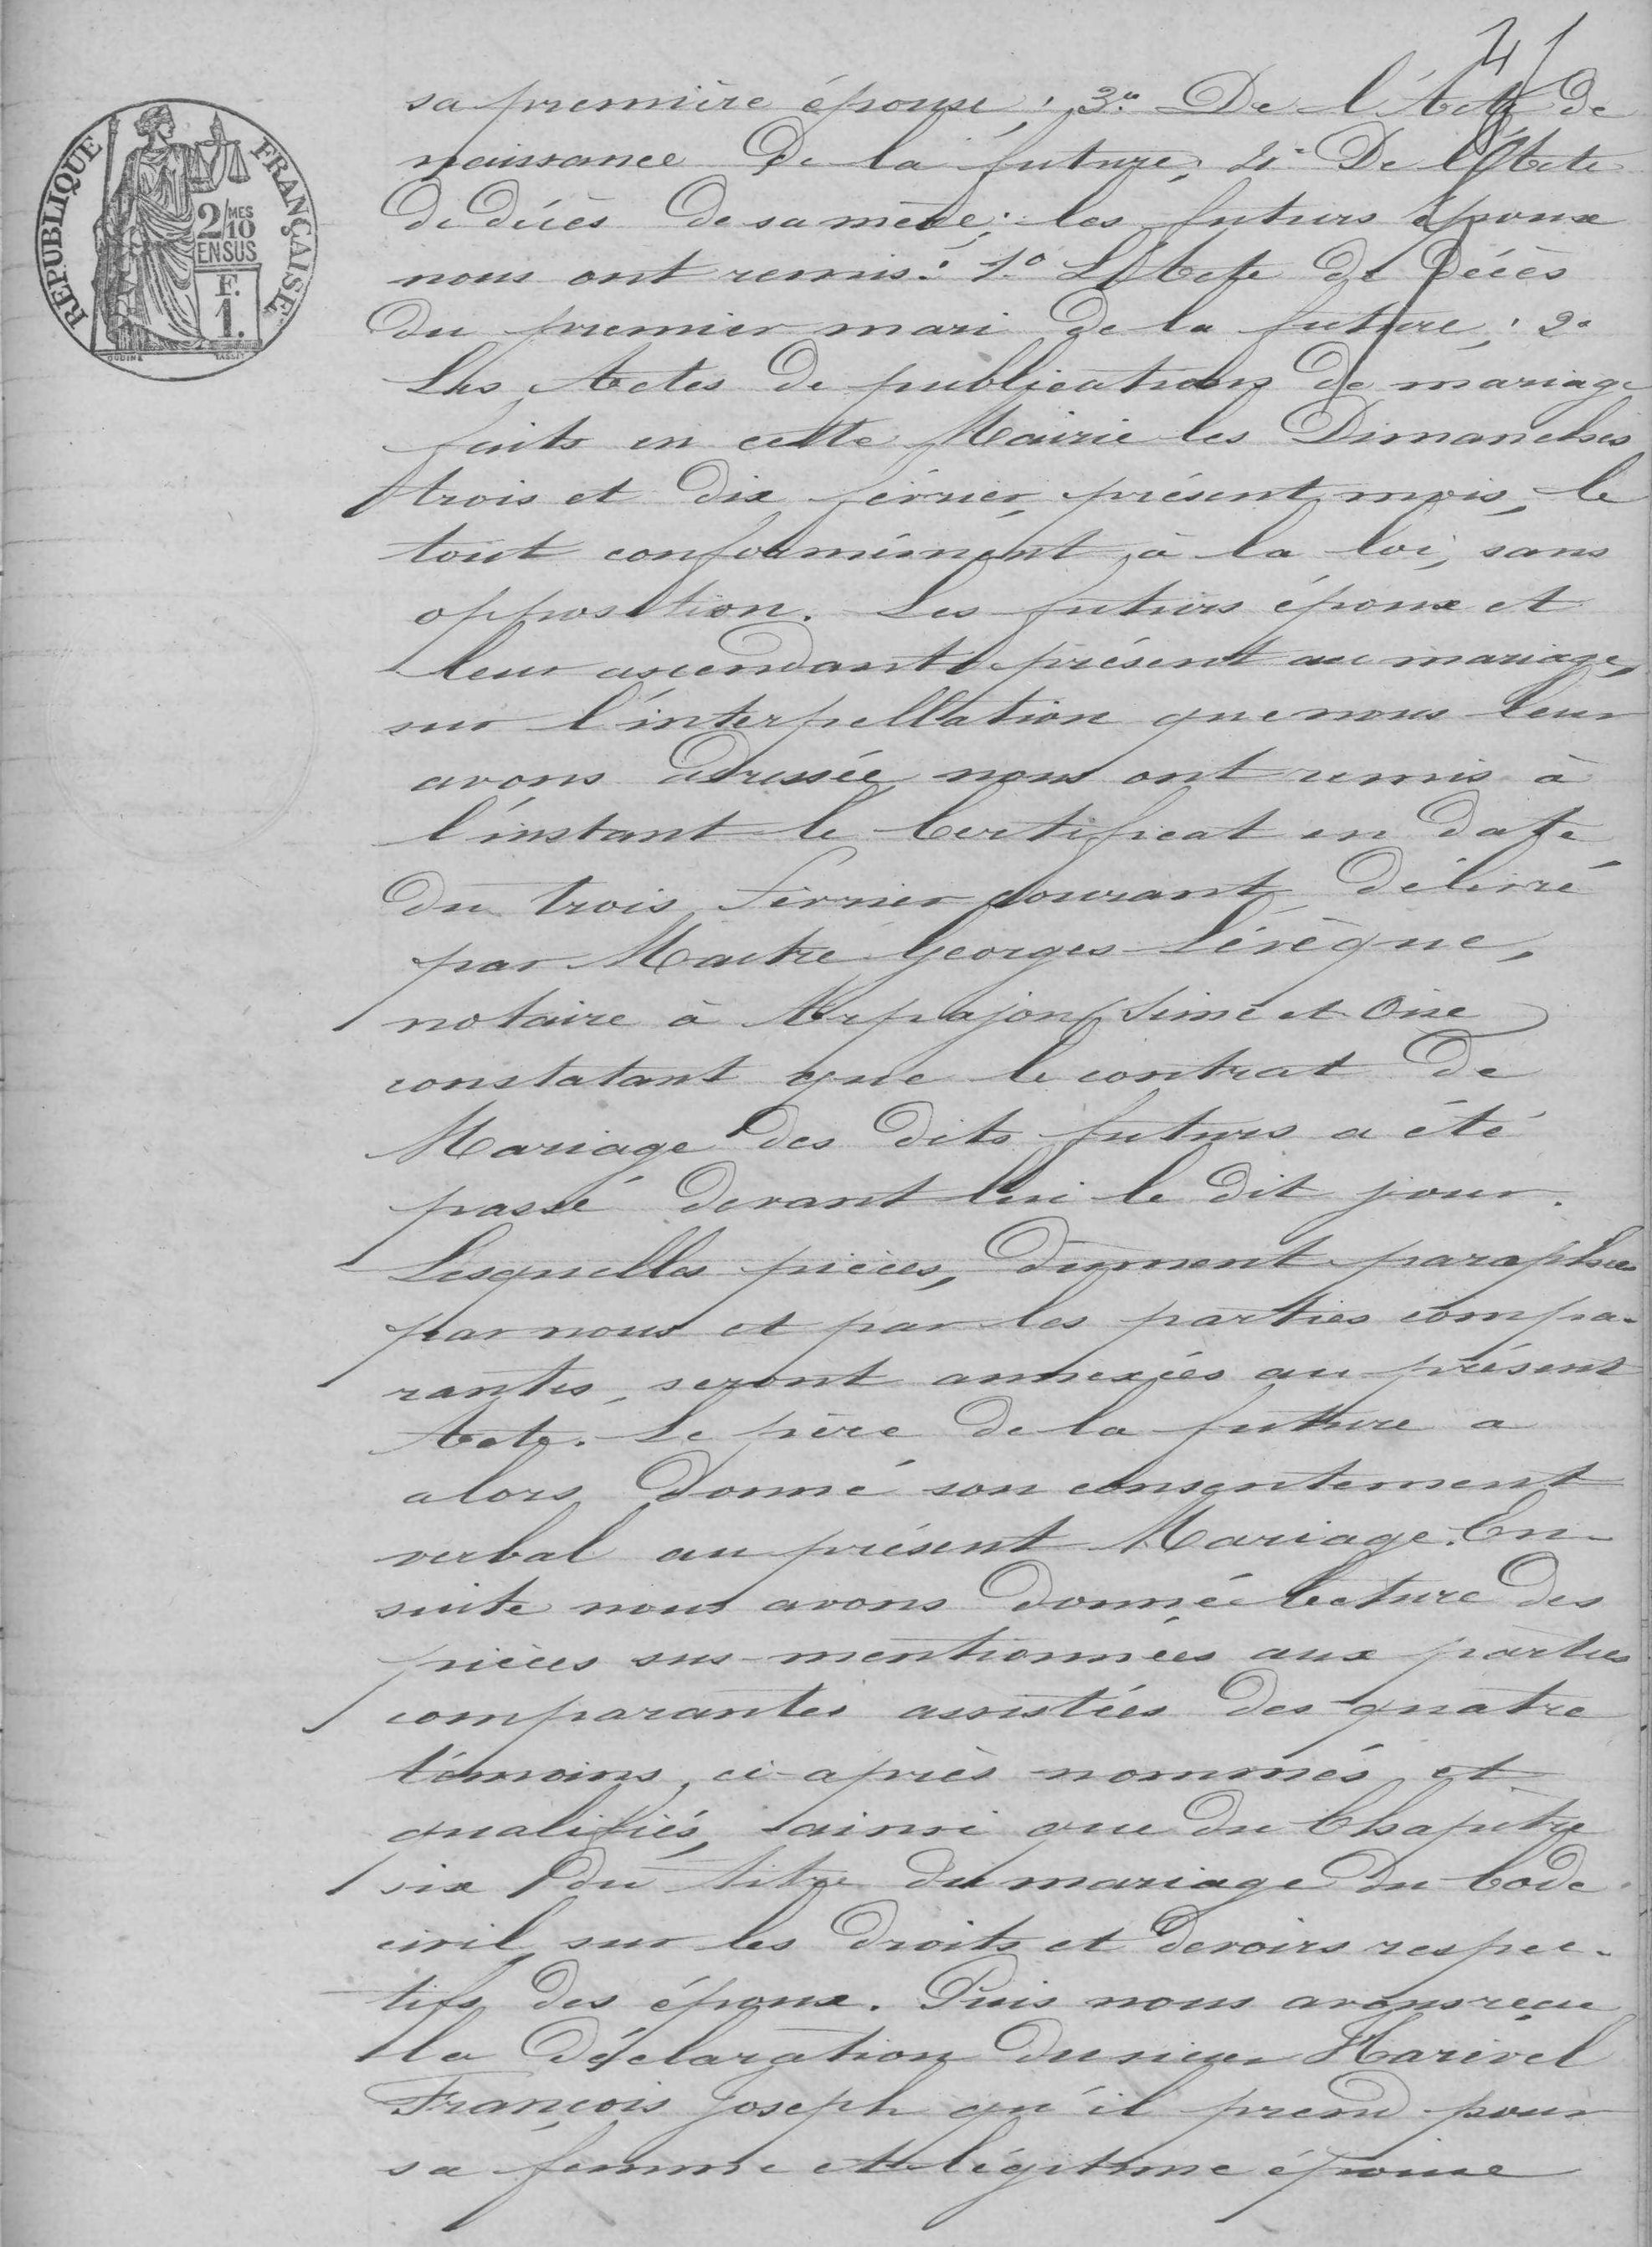 41
RÉPUBLIQUE FRANÇAISE
2/MES
10
EN SUS
F.
1.
OUDINÉ TASSET
sa première épouse; 3.° De l'Acte de
naissance De la future; 4° De l'Acte
De décès De sa mère; les futurs époux
nous ont remis: 1° L'Acte De Décès
Du premier mari De la future; 2°
Les Actes De publications De mariage
faits en cette Mairie les Dimanches
trois et Dix février, présent mois, le
tout conformément à la loi, sans
opposition. Les futurs époux et
leur ascendant présent au mariage,
sur l'interpellation que nous leur
avons adressée, nous ont remis à
l'instant le Certificat en Date
Du trois Février courant Délivré
par Maitre Georges Lévêque,
notaire à Arpajon, Seine et Oise
constatant que le contrat De
Mariage Des Dits futurs a été
passé Devant lui le Dit jour.
Lesquelles pièces, Dument paraphées
par nous et par les parties compa-
rantes, seront annexées au présent
Acte. Le père De la future a
alors Donné son consentement
verbal au présent Mariage. En-
suite nous avons Donné lecture Des
pièces sus-mentionnées aux parties
comparantes assistées Des quatre
témoins, ci-après nommés et
qualifiés, ainsi que Du Chapitre
six Du titre Du mariage Du Code
civil, sur les Droits et Devoirs respec-
tifs Des époux. Puis nous avons reçu
la Déclaration Du sieur Harivel
François Joseph qu'il prend pour
sa femme et légitime épouse